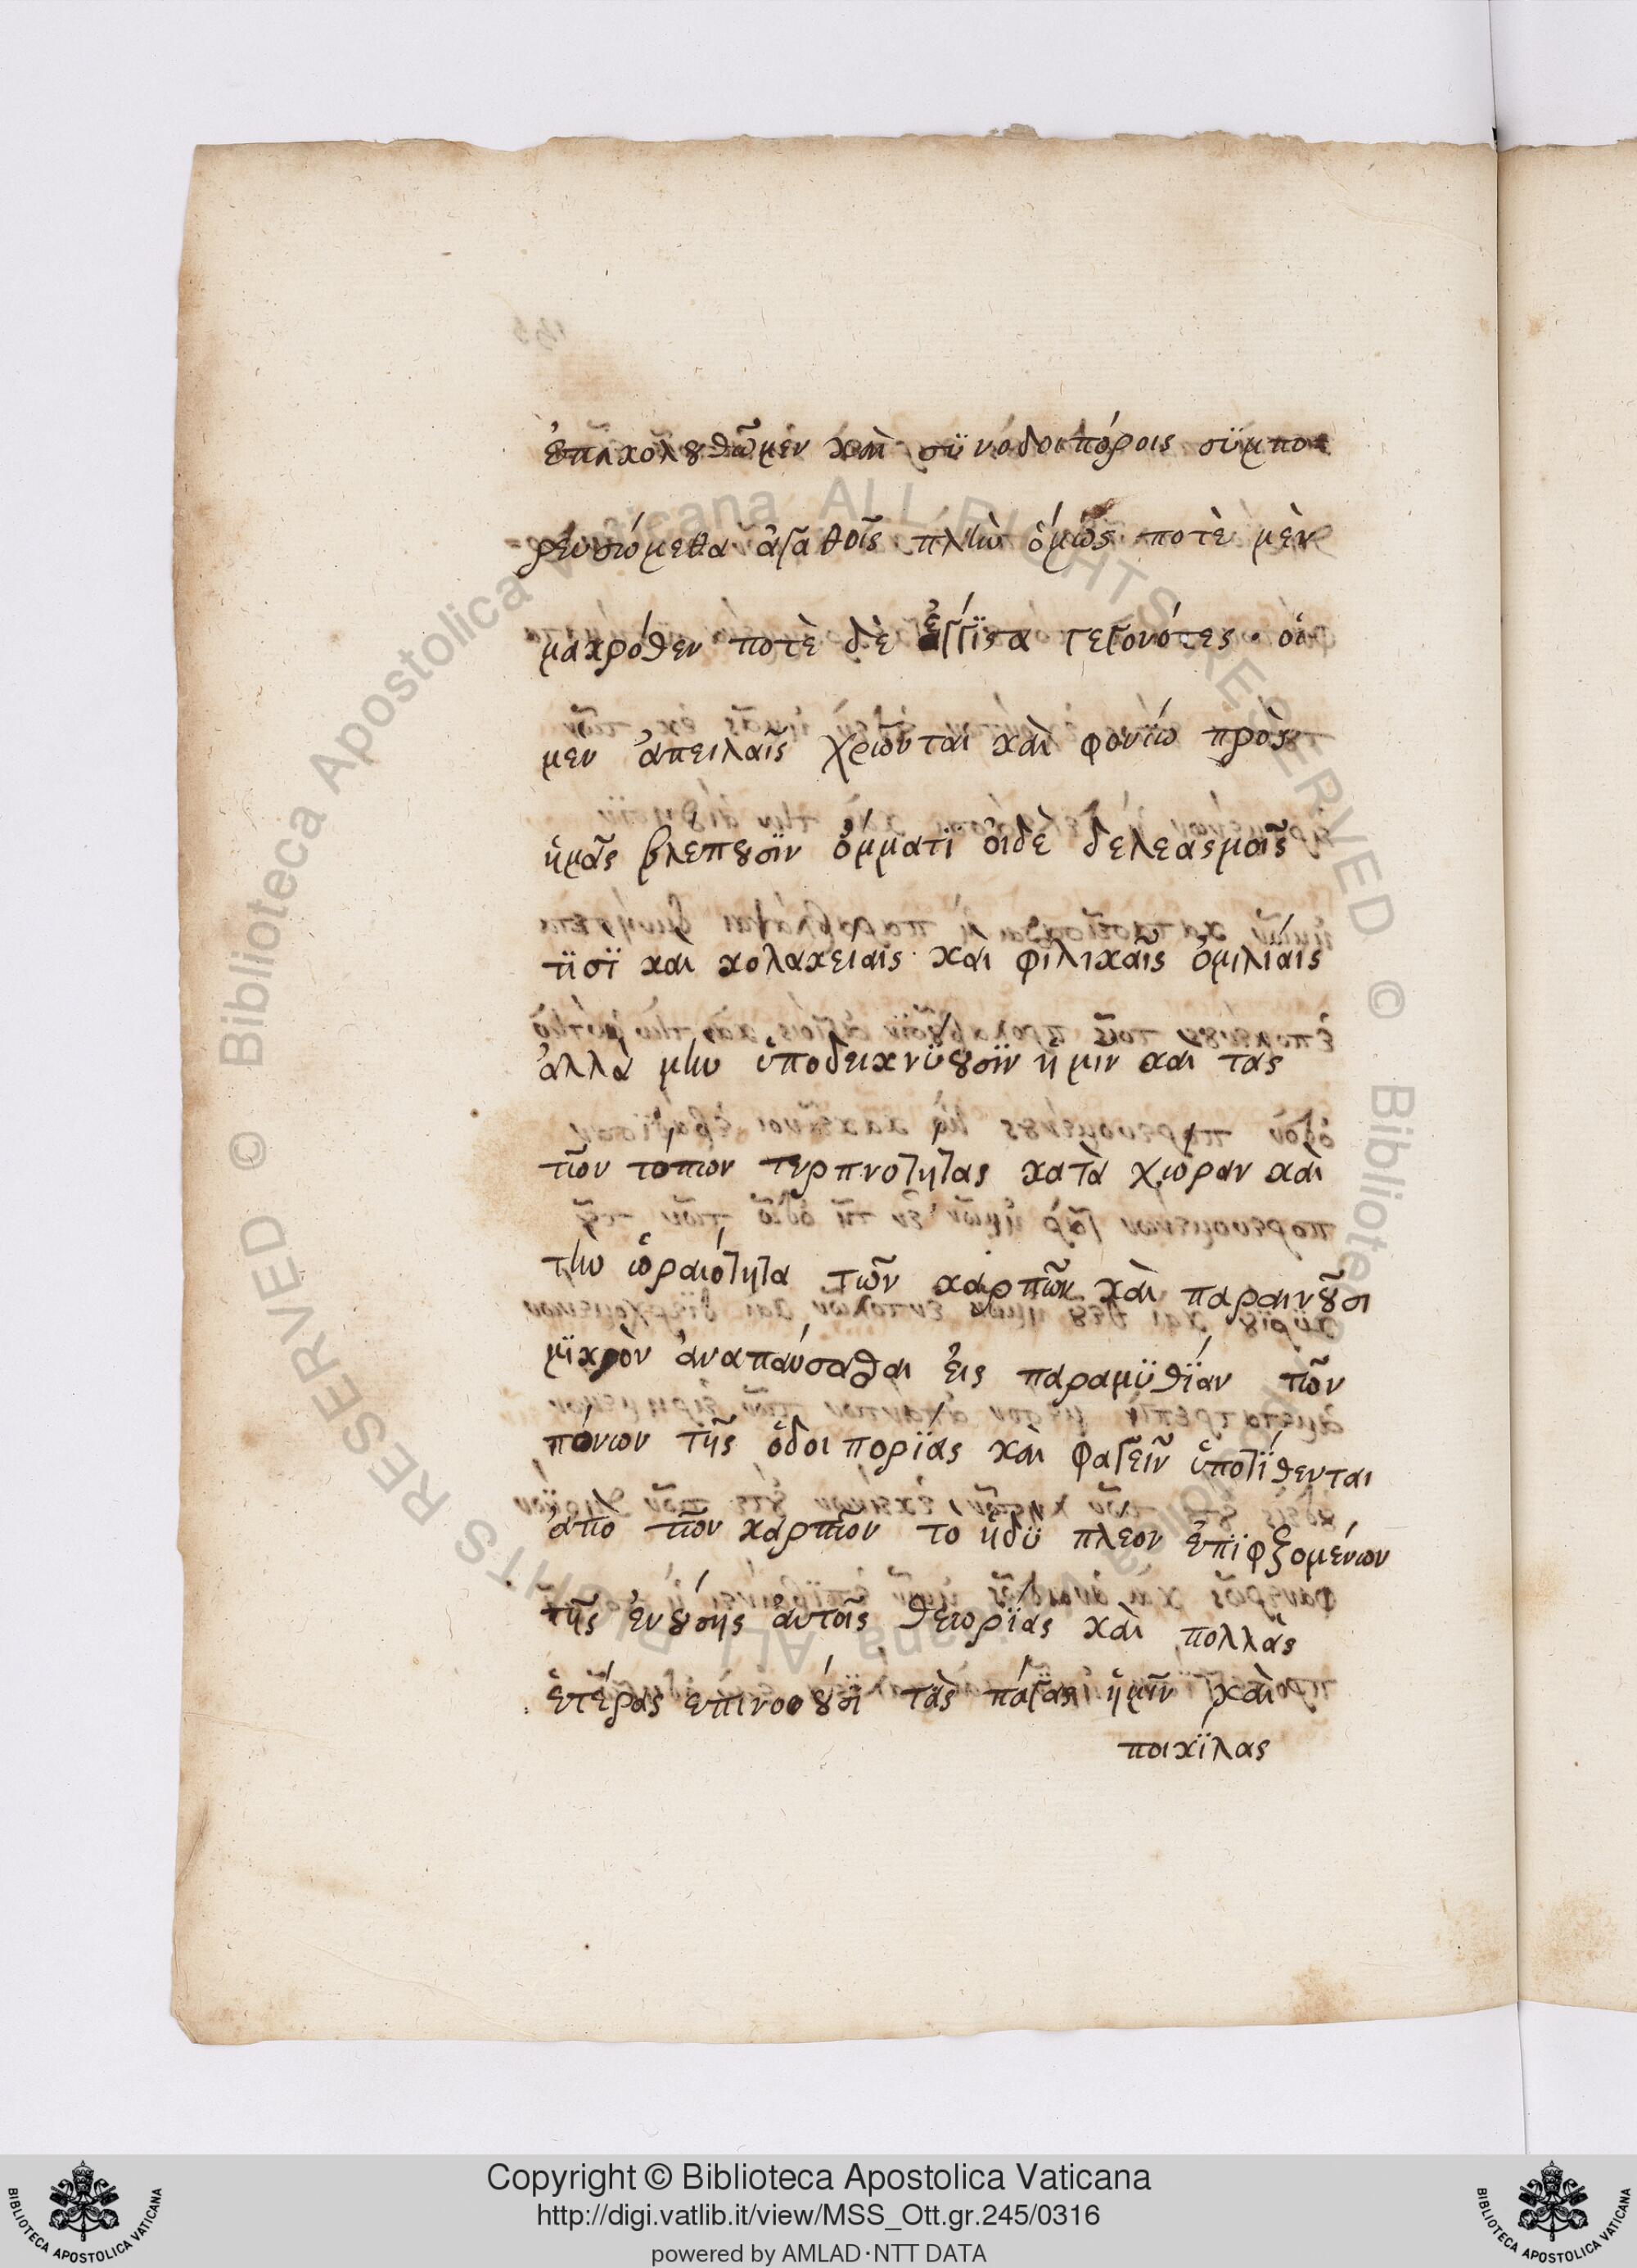 ἐπακολȣθῶμεν καὶ σϋνοδοιπόροις σϋμπο
ρευσώμεθα ἀγαθοῖς πλὴν ὅμως ποτὲ μὲν
μακρόθεν ποτὲ δὲ ἔγγϊστα γεγονότες · οἱ
μὲν ἀπειλαῖς χρῶνται καὶ φονΐω πρὸς
ἡμᾶς βλεπȣσϊν ὄμματϊ οἱδὲ δελεασμοῖς
τϊσϊ και κολακείαις και φϊλικαῖς ὁμιλίαις
ἀλλὰ μὴν ὑποδεικνϋȣσϊν ἡμιν καὶ τας
τῶν τόπων τερπνοτητας κατὰ χώραν καὶ
τὴν ὡραιότητα τῶν καρπῶν καὶ παραινȣ͂σι
μϊκρὸν ἀναπαύσασθαι ἐις παραμϋθΐαν τῶν
πόνων τῆς ὁδοιπορΐας καὶ φαγεῖν ὑποτΐθενται
ἀπὸ τῶν καρπῶν το ἡδϋ πλεον
τῆς ἐνȣ́σης ἀυτοῖς θεωρΐας καὶ πολλὰς
ἑτέρας επινοȣσϊ τὰς πάγας ἡμῖν καὶ
ποικΐλας
Copyright © Biblioteca Apostolica Vaticana
http://digi.vatlib.it/view/MSS_Ott.gr.245/0316
powered by AMLAD·NTT DATA
BIBLIOTECA APOSTOLICA VATICANA
BIBLIOTECA APOSTOLICA VATICANA
© Biblioteca Apostolica Vaticana ALL RIGHTS RESERVED © Biblioteca Apostolica Vaticana ALL RIGHTS RESERVED